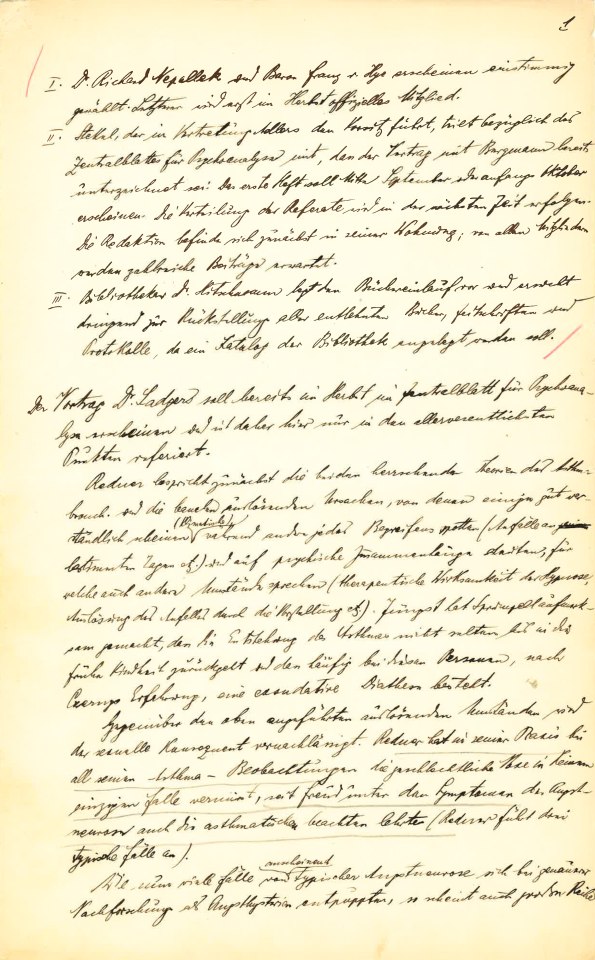 1
I. Dr. Richard Nepallek und Baron Franz v. Hye erscheinen einstimmig
gewählt. Letzterer wird erst im Herbst offizielles Mitglied.
II. Stekel, der in Vertretung Adlers den Vorsitz führt, teilt bezüglich des
Zentralblattes für Psychoanalyse mit, dass der Vertrag mit Bergmann bereits
unterzeichnet sei. Das erste Heft soll Mitte September oder anfangs Oktober
erscheinen. Die Verteilung der Referate wird in der nächsten Zeit erfolgen.
Die Redaktion befinde sich zunächst in seiner Wohnung; von allen Mitgliedern
werden zahlreiche Beiträge erwartet.
III. Bibliothekar Dr. Hitschmann legt den Büchereinlauf vor und ersucht
dringend zur Rückstellung aller entlehnten Bücher, Zeitschriften und
Protokolle, da ein Katalog der Bibliothek angelegt werden soll.
Der Vortrag Dr. Sadgers soll bereits im Herbst im Zentralblatt für Psychoana-
lyse erscheinen und ist daher hier nur in den allerwesentlichsten
Punkten referiert.
Redner bespricht zunächst die beiden herrschenden Theorien des Asthma
und die auslösenden Ursachen, von denen einige gut ver-
ständlich scheinen während andere jedes Begreifens spotten (Anfälle an
bestimmten Tagen etc.) und auf psychische Zusammenhänge deuten, für
welche auch andere Umstände sprechen (therapeutische Wirksamkeit der Hypnose,
Auslösung des Anfalles durch die Vorstellung etc.). Jüngst hat aufmerk-
sam gemacht, dass die Entstehung des Asthmas nicht selten bis in die
frühe Kindheit zurückgeht und dass häufig bei diesen Personen, nach
Czernys Erfahrung, eine exsudative Diathese besteht.
Gegenüber den oben angeführten auslösenden Umständen wird
das sexuelle konsequent vernachlässigt. Redner hat in seiner Praxis bei
all seinen Asthma-Beobachtungen die geschlechtliche Note in keinem
einzigen Falle vermisst, seit Freud unter den Symptomen der Angst-
neurose auch die asthmatischen beachten lehrte (Redner führt drei
typische Fälle an).
Wie nun viele Fälle von anscheinend typischer Angstneurose sich bei genauerer
Nachforschung als Angsthysterien entpuppten, so scheint auch Reihe